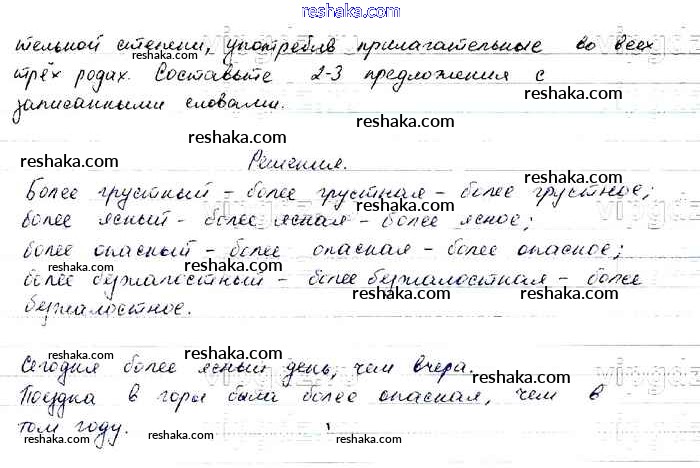 reshaka.com
тельной степени, употребив прилагательные во всех
трёх родах. Составьте 2-3 предложения с
записанными словами.
reshaka.com reshaka.com
Решения.
reshaka.com reshaka.com
Более грустный – более грустная – более грустное;
более ясный – более ясная – более ясное;
reshaka.com reshaka.com
более опасный – более опасная – более опасное;
reshaka.com reshaka.com
более безжалостный – более безжалостная – более
reshaka.com reshaka.com
безжалостное.
reshaka.com
Сегодня более ясный день, чем вчера.
reshaka.com reshaka.com
Поездка в горы была более опасная, чем в
том году.
reshaka.com reshaka.com